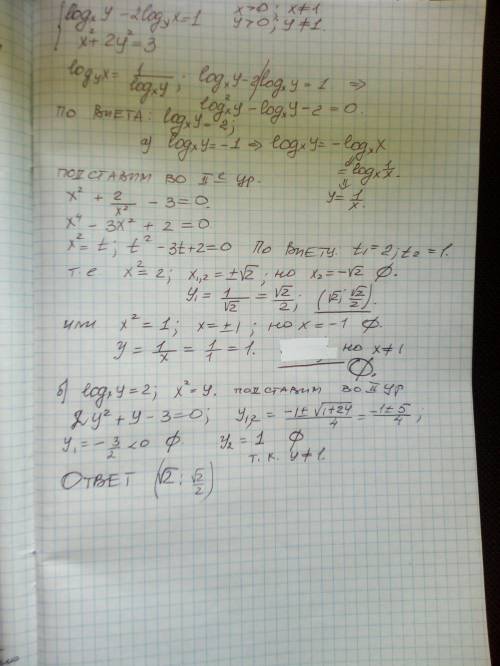 log_x y − 2log_y x = 1    x>0; x≠1
x² + 2y² = 3    y>0; y≠1.
log_y x = 1/log_x y; log_x y − 2/log_x y = 1 ⇒
log²_x y − log_x y − 2 = 0.
ПО ВИЕТА: log_x y = 2;
а) log_x y = −1 ⇒ log_x y = −log_x x
= log_x 1/x.
ПОДСТАВИМ ВО II^е УР. y = 1/x.
x² + 2/x² − 3 = 0.
x⁴ − 3x² + 2 = 0
x² = t; t² − 3t + 2 = 0 ПО ВИЕТУ. t₁ = 2; t₂ = 1.
т.е x² = 2; x₁,₂ = ±√2; но x₂ = −√2 ∅.
y₁ = 1/√2 = √2/2; (√2; √2/2).
или x² = 1; x = ±1; но x = −1 ∅.
y = 1/x = 1/1 = 1. но x≠1
∅.
б) log_x y = 2; x² = y. ПОДСТАВИМ ВО II УР
2y² + y − 3 = 0; y₁,₂ = (−1 ± √(1+24))/4 = (−1 ± 5)/4;
y₁ = −3/2 < 0 ∅. y₂ = 1 ∅
т.к. y≠1.
ОТВЕТ (√2; √2/2)